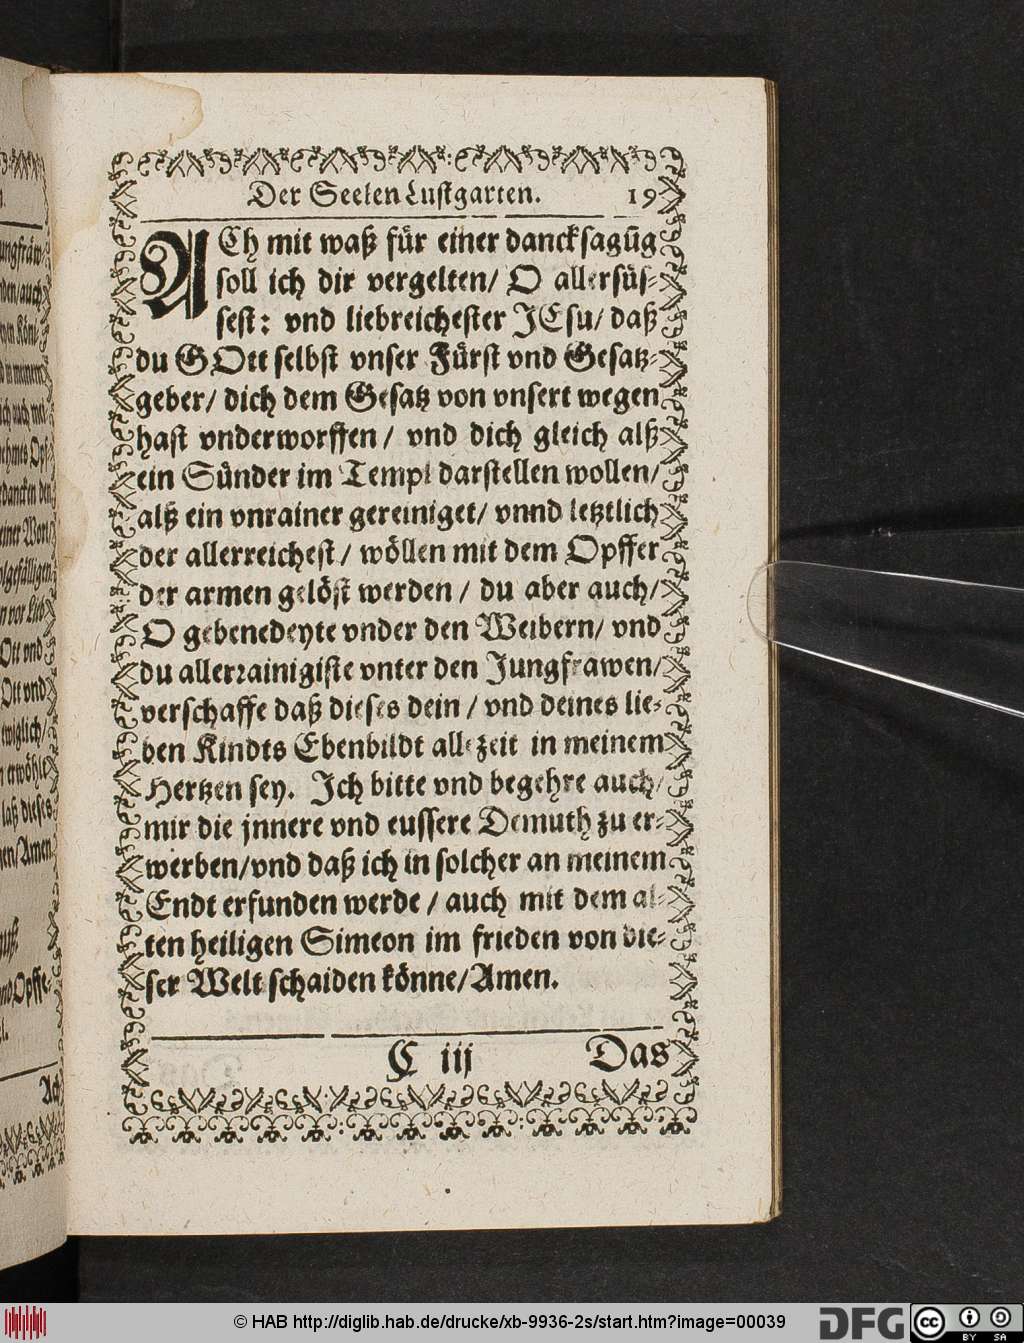 Der Seelen Lustgarten. 19
ACh mit waß für einer dancksagūg
soll ich dir vergelten/ O allersüs-
sest: vnd liebreichester JEsu/ daß
du GOtt selbst vnser Fürst vnd Gesatz-
geber/ dich dem Gesatz von vnsert wegen
hast vnderworffen/ vnd dich gleich alß
ein Sünder im Templ darstellen wollen/
alß ein vnrainer gereiniget/ vnnd letztlich
der allerreichest/ wöllen mit dem Opffer
der armen gelöst werden/ du aber auch/
O gebenedeyte vnder den Weibern/ vnd
du allerrainigiste vnter den Jungfrawen/
verschaffe daß dieses dein/ vnd deines lie-
ben Kindts Ebenbildt allezeit in meinem
Hertzen sey. Ich bitte vnd begehre auch/
mir die jnnere vnd eussere Demuth zu er-
werben/ vnd daß ich in solcher an meinem
Endt erfunden werde/ auch mit dem al-
ten heiligen Simeon im frieden von die-
ser Welt schaiden könne/ Amen.
C iij Das
ungfräw
den/auch
dancken den
einer Wort
olgefälligen
Ott vnd
Ott vnd
ewiglich/
n erwöhlt
laß dieses
gen/Amen
Ach
© HAB http://diglib.hab.de/drucke/xb-9936-2s/start.htm?image=00039
DFG
cc BY SA